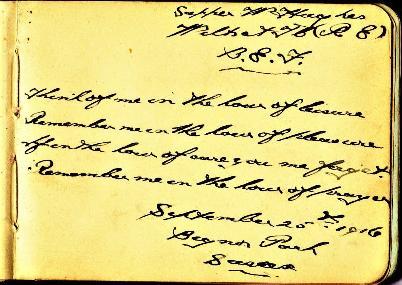 Sapper W Hughes
(R E)
B.E.F.
Think of me in the hour of leisure
Remember me in the hour of pleasure
When the hour of care you me forget
Remember me in the hour of prayer
September 25th 1916
Bognor Park
Sussex